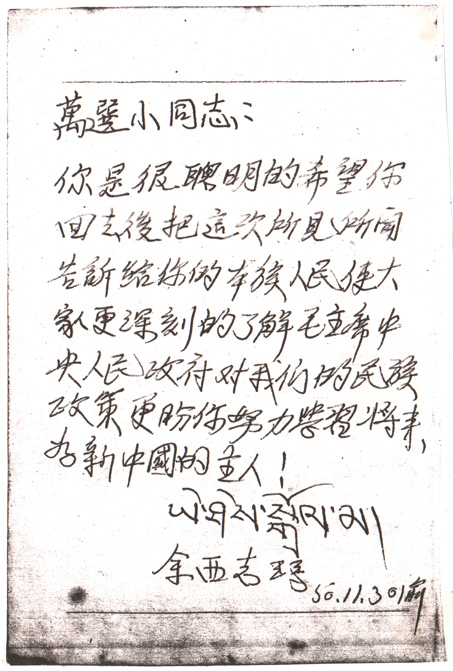 萬選小同志：
你是很聰明的希望你
回去後把這次所見所聞
告訴給你的本族人民使大
家更深刻的了解毛主席中
央人民政府对我们的民族
政策更盼你努力學習将来
为新中國的主人！
ཡེ་ཤེས་སྒྲོལ་མ།
余西志玛
50.11.30渝